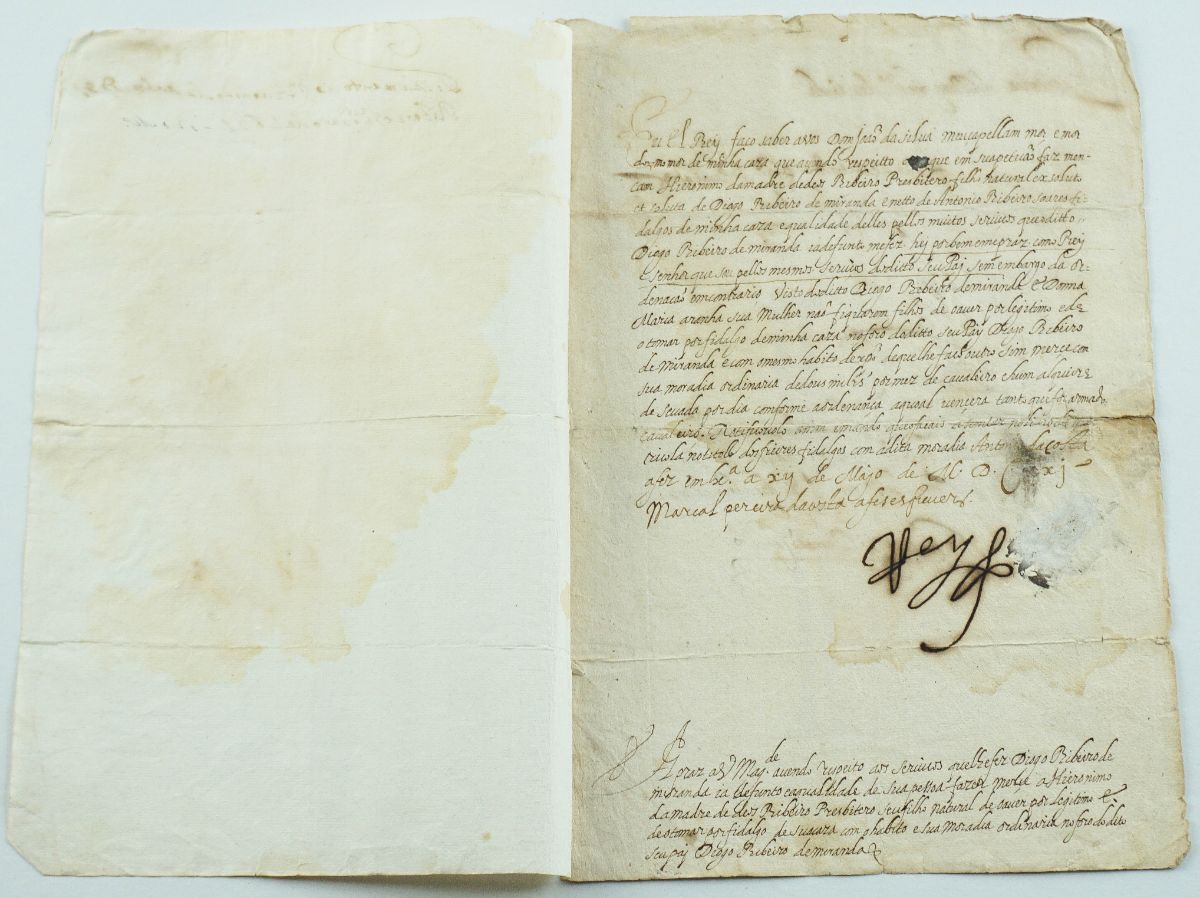 Eu El Rey faço saber a vos Dom joaõ da silva meu capellam mor e mor
domo mor de minha caza que avendo respeitto que em sua petiçaõ faz men-
cam Hieronimo da madre de des Ribeiro Presbitero filho natural ex soluto
et soluta de Diogo Ribeiro de miranda e netto de Antonio Ribeiro soares fi-
dalgos de minha caza e qualidade delles pellos muitos servicos que o ditto
Diogo Ribeiro de miranda ia defunto me fez hey por bem e me praz como Rey
e senhor que sou pellos mesmos servicos do ditto seu Paj sem embargo da or-
denaçaõ em contrario visto o ditto Diogo Ribeiro de miranda e Donna
Maria aranha sua Mulher naõ fiquarem filhos de o aver por legitimo e de
o tomar por fidalgo de minha caza no foro do ditto seu Paj Diogo Ribeiro
de Miranda e com o mesmo habito de xpo de que lhe faço outro sim merce com
sua moradia ordinaria de dous mil rs por mez de cavaleiro e hum alqueire
de sevada por dia conforme a ordenança a qual vencera tanto que for armado
cavaleiro. Notificovolo assim e mando que o façais assentar no livro da ma
tricola no titolo dos fieires fidalgos com a dita moradia Antonio da costa
a fez em Lx.ª a xij de Majo de M. D. C xj
Marcal pereira da costa a fes escrever.
Rey
Apraz a V Mag.de avendo respeito aos servicos que lhe fez Diogo Ribeiro de
miranda ia defunto e a qualidade de sua pessoa fazer merce a Hieronimo
da madre de des Ribeiro Presbitero seu filho natural de o aver por legitimo e
de o tomar por fidalgo de sua caza com o habito e sua moradia ordinaria no foro do dito
seu paj Diogo Ribeiro de miranda